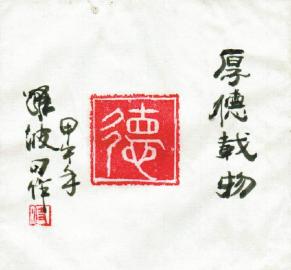 厚德載物
德
甲午年
羅波习作